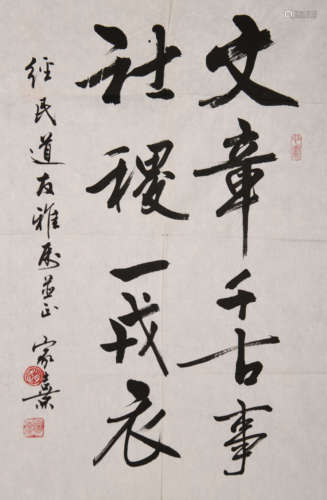 文章千古事
社稷一戎衣
經民道友雅屬並正 家業